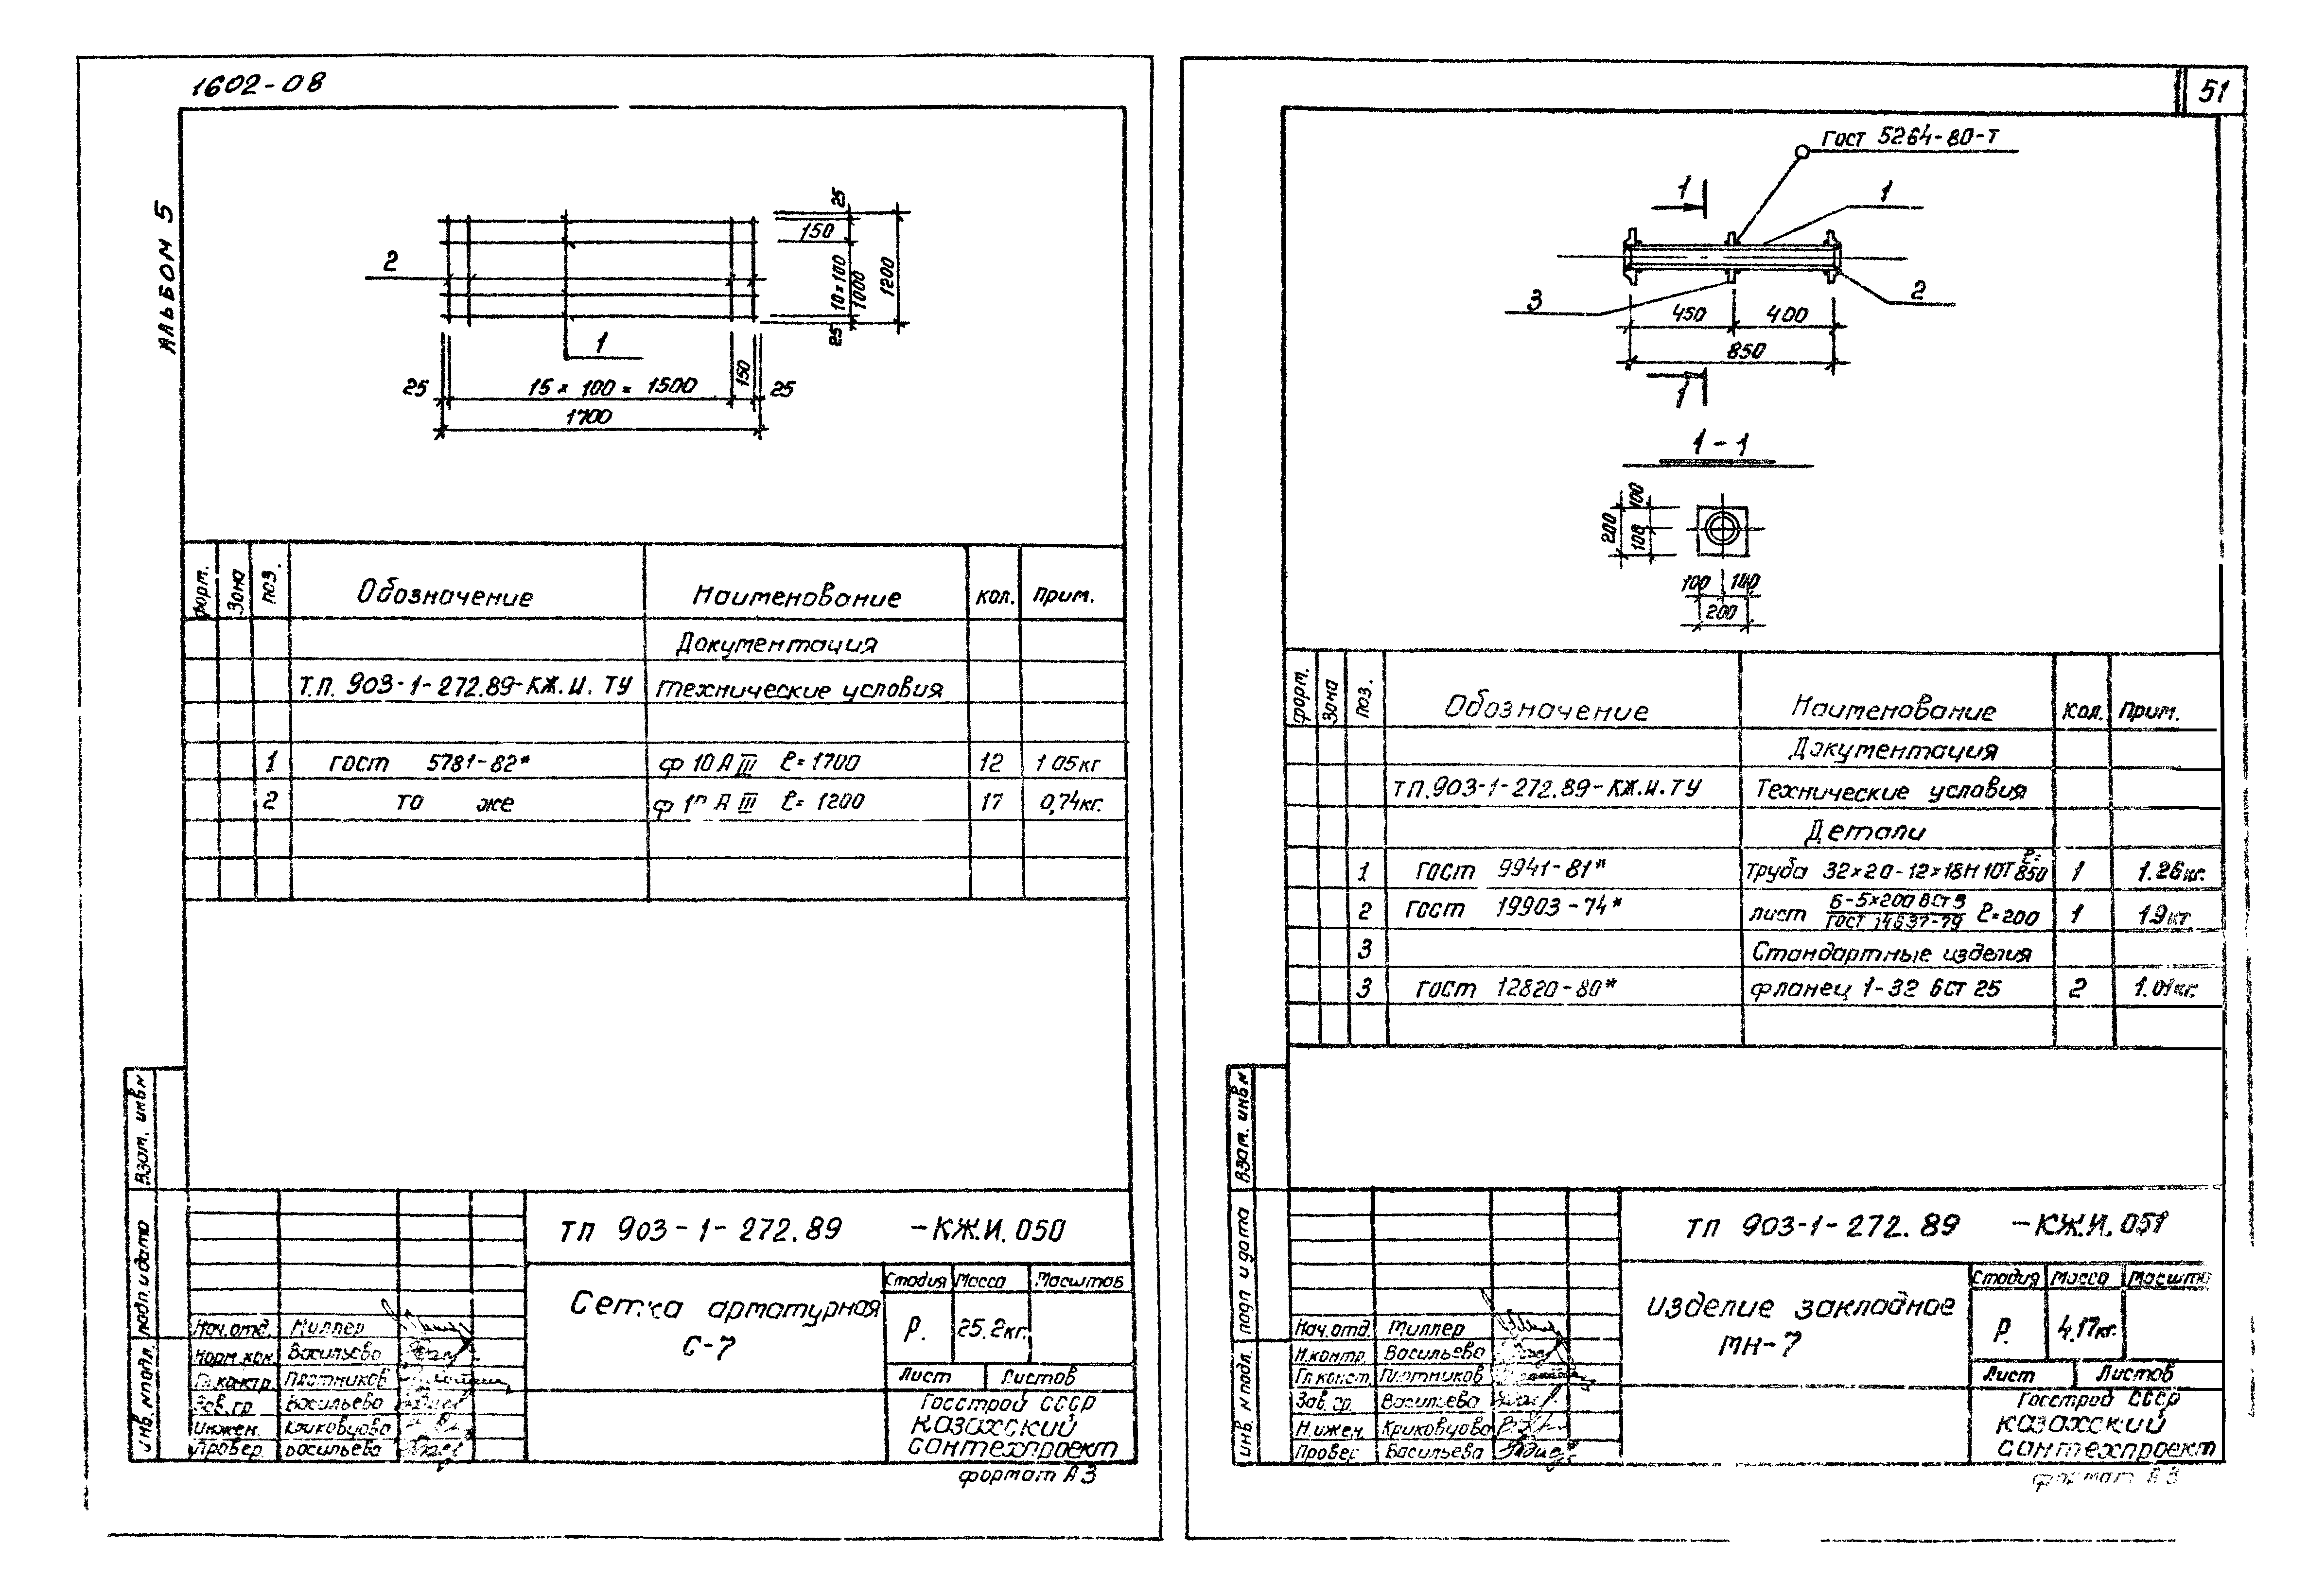 1602-08
АЛЬБОМ 5
2
1
25
150
10×100
1000
1200
25
25
15 × 100 = 1500
150
25
1700
форм.
Зона
поз.
Обозначение
Наименование
кол.
Прим.
Документация
Т.П. 903-1-272.89-КЖ.И. ТУ
технические условия
1 гост 5781-82* ф 10 А III ℓ=1700 12 1 05кг
2 то же А III ℓ= 1200 17 0,74кг.
Взам. инв.№
подп. и дата
инв. № подл.
ТП 903-1-272.89 -КЖ.И.050
Сетка арматурная
С-7
Стадия Масса Масштаб
Р. 25.2кг.
Лист Листов
Госстрой СССР
казахский
сантехпроект
Нач.отд. Миллер
Норм.кон. Васильева
Гл.констр. Плотников
Зав.гр. Васильева
Инжен. Криковцова
Провер. Васильева
формат А3
51
Гост 5264-80-Т
1
1
3
2
450
400
850
1
1-1
100
200
100
100
100
200
форм.
Зона
поз.
Обозначение
Наименование
Кол.
Прим.
Документация
ТП.903-1-272.89-КЖ.И.ТУ
Технические условия
Детали
1 гост 9941-81* труба 32×20-12×18Н10Т ℓ=850 1 1.26кг.
2 гост 19903-74* лист Б-5×200 ВСт3 / гост 14637-79 ℓ=200 1 1.9кг
3 Стандартные изделия
3 гост 12820-80* фланец 1-32 6ст 25 2 1.01кг.
Взам. инв.№
подп и дата
инв. № подл.
ТП 903-1-272.89 -КЖ.И.051
изделие закладное
МН-7
Стадия Масса Масшта
Р. 4,17кг.
Лист Листов
Госстрой СССР
казахский
сантехпроект
Нач.отд. Миллер
Н.контр. Васильева
Гл.конст. Плотников
Зав.гр. Васильева
Н.ижен. Криковцова
Провер Васильева
формат А3